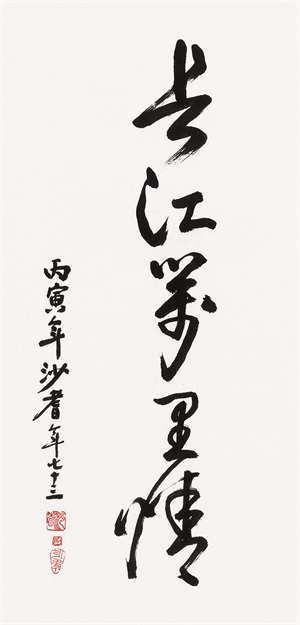 长江万里情
丙寅年沙耆年七十三